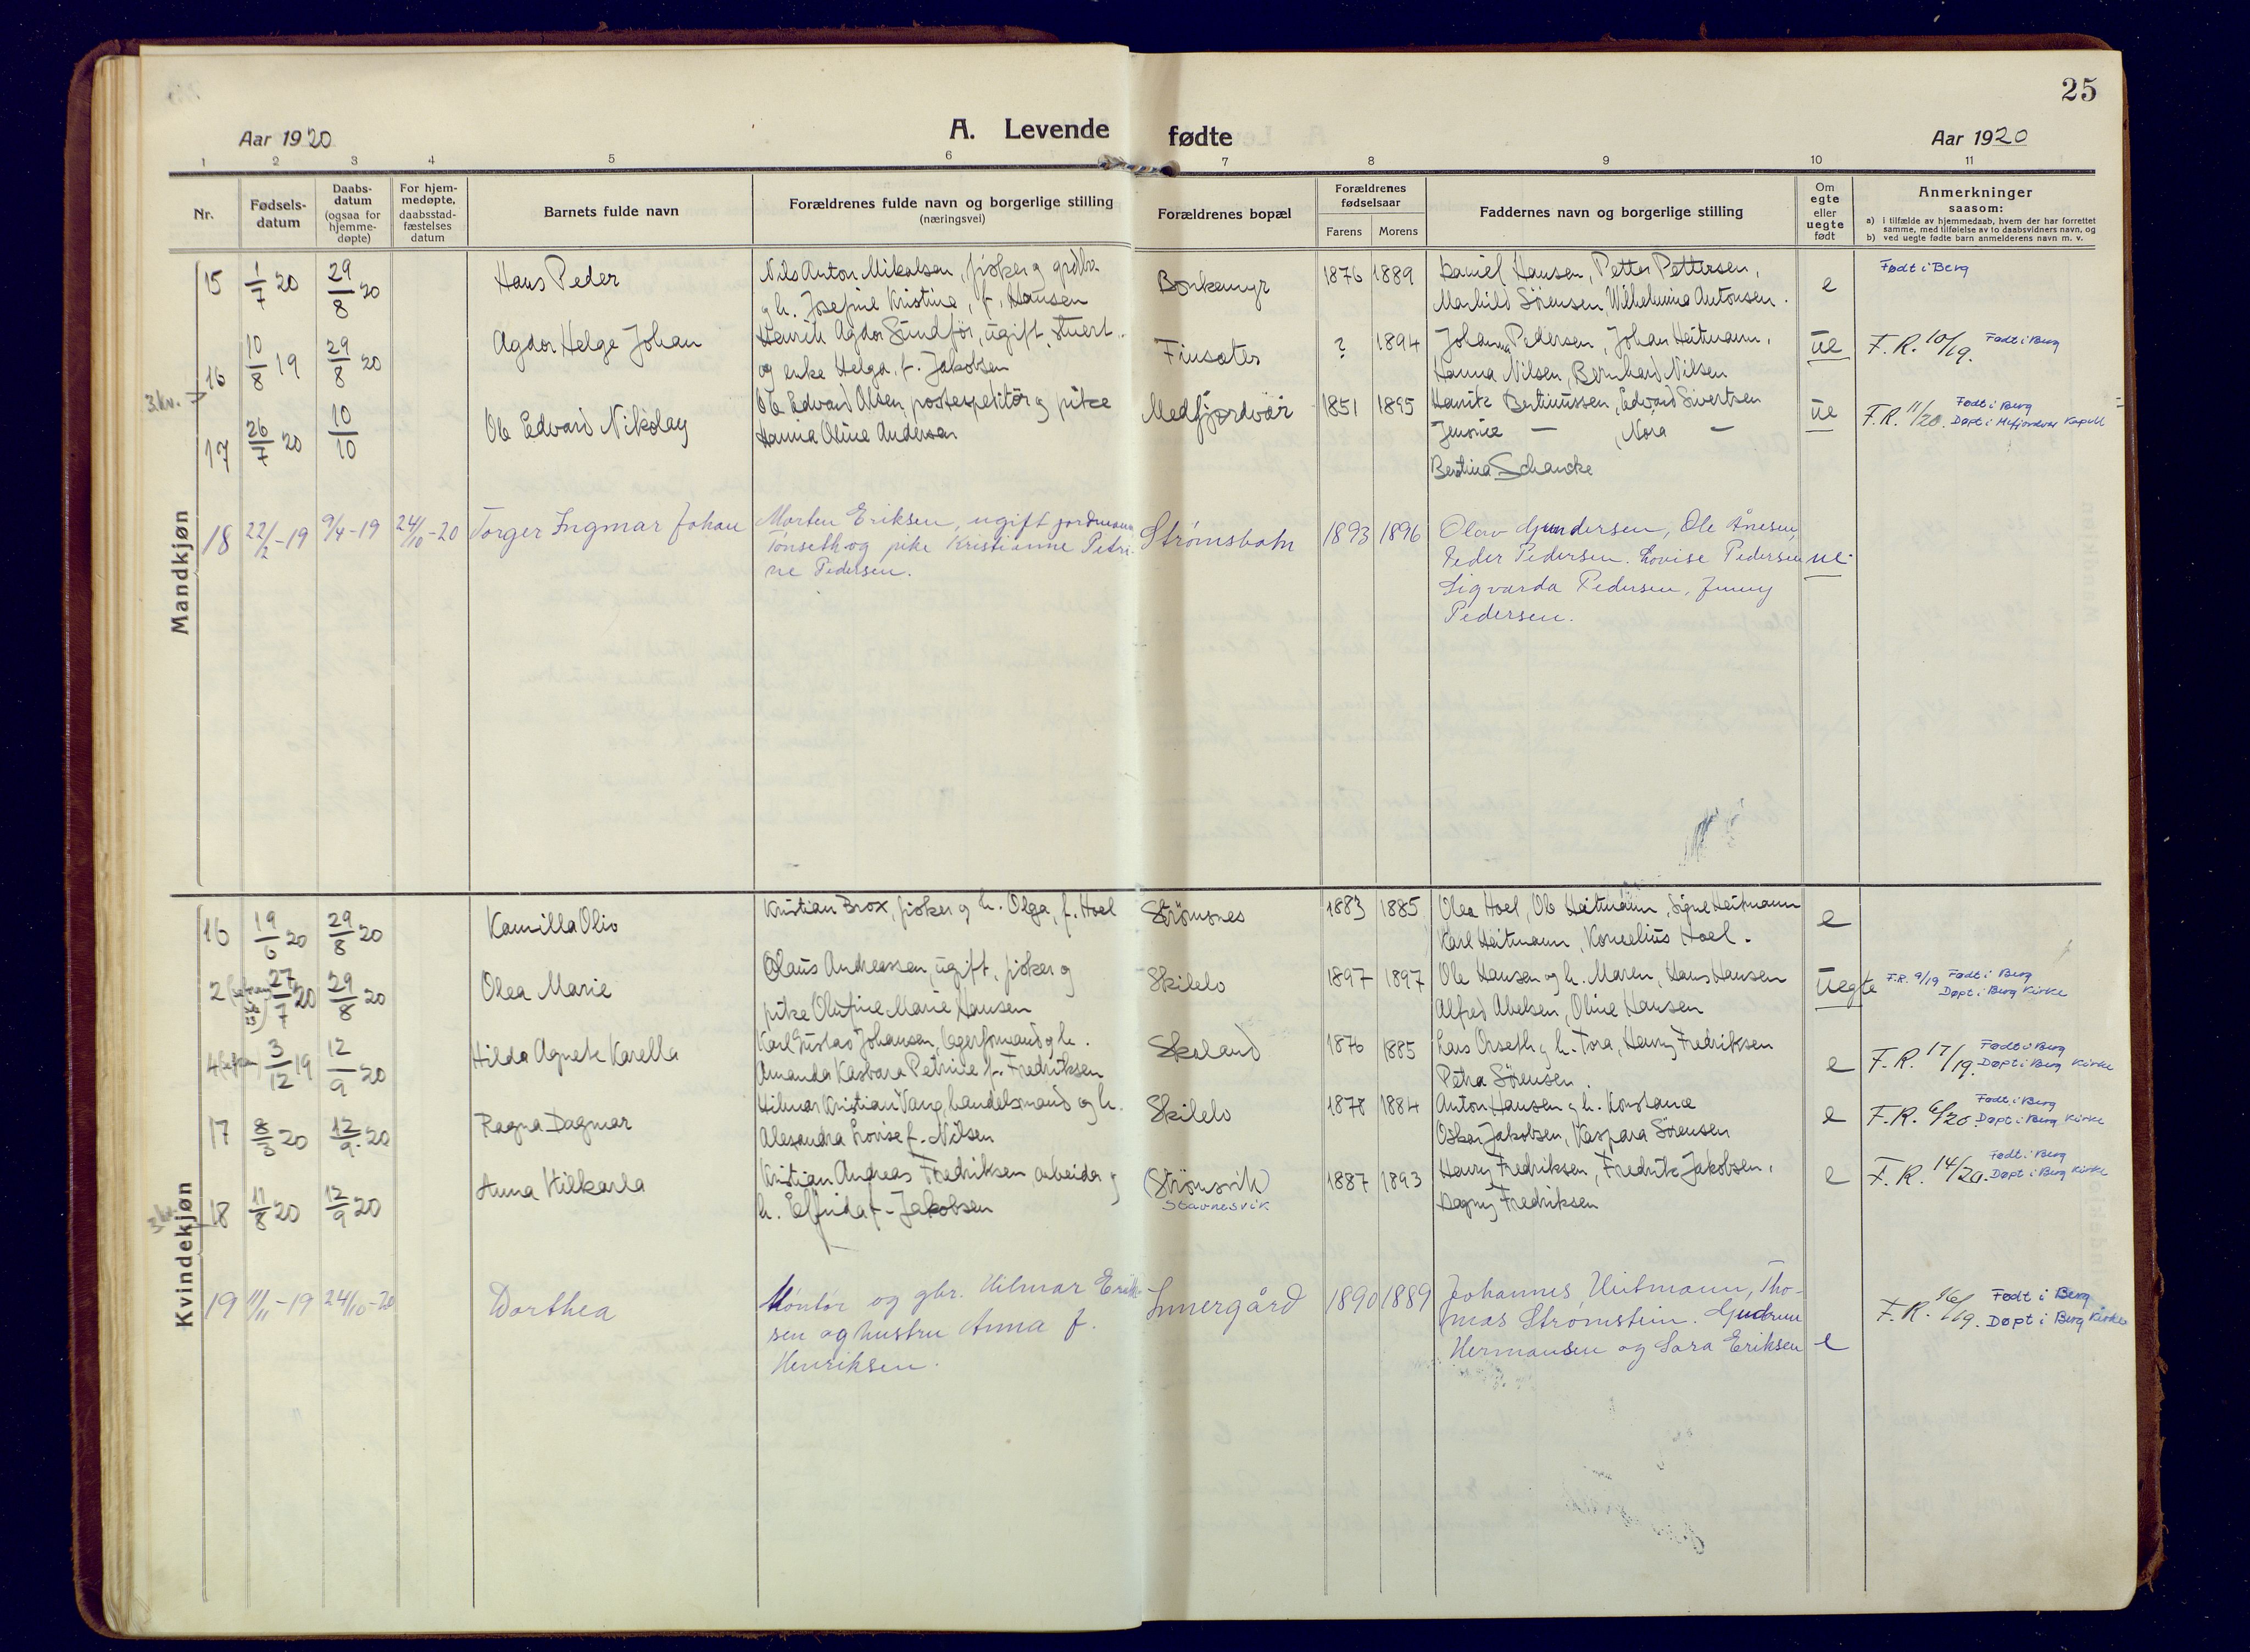 25
Aar 1920
A. Levende fødte
Aar 1920
1 2 3 4 5 6 7 8 9 10 11
Nr.
Fødsels-
datum
Daabs-
datum
(ogsaa for
hjemme-
døpte)
For hjem-
medøpte,
daabsstad-
fæstelses
datum
Barnets fulde navn
Forældrenes fulde navn og borgerlige stilling
(næringsvei)
Forældrenes bopæl
Forældrenes
fødselsaar
Farens Morens
Faddernes navn og borgerlige stilling
Om
egte
eller
uegte
født
Anmerkninger
saasom:
a) i tilfælde av hjemmedaab, hvem der har forrettet
samme, med tilføielse av to daabsvidners navn, og
b) ved uegte fødte barn anmelderens navn m. v.
Mandkjøn
15 1/7 20 29/8 20 Hans Peder
Nils Anton Mikalsen, fisker og grdbr.
og h. Josefine Kristine, f. Hansen
1876 1889
Daniel Hansen, Petter Pettersen,
Sørensen, Wilhelmina Antonsen.
e
Født i Berg
16 10/8 19 29/8 20 Agdor Helge Johan
Henrik Agdor Sundfør, ugift, stuert
og enke Helga, f. Jakobsen
Finsæter
? 1894
Johanna Pedersen, Johan Heitmann,
Hanna Nilsen, Bernhard Nilsen
ue
F.R. 10/19. Født i Berg
3.kv.
17 26/7 20 10/10 Ole Edvard Nikolay
Ole Edvard Olsen, postexpeditör og pike
Hanna Oline Andersen
Medfjordvær
1851 1895
Henrik Bertinussen, Edvard Sivertsen
— , Nora —
Bertina Schancke
ue
F.R. 11/20. Født i Berg
Døpt i Mefjordvær Kapell
18 22/2-19 9/4-19 24/10-20 Torger Ingmar Johan
Morten Eriksen, ugift jordmann
Tønseth og pike Kristianne Petri-
ne Pedersen.
Strømsbotn
1893 1896
Olav Gundersen, Ole Ånesen,
Peder Pedersen. Lovise Pedersen
Sigvarda Pedersen, Jenny
Pedersen.
ue
Kvindekjøn
16 19/6 20 29/8 20 Kamilla Oliv
Kristian Brox, fisker og h. Olga, f. Hoel
Strömsnes
1883 1885
Olea Hoel, Ole Heitmann, Signe Heitmann
Karl Heitmann, Kornelius Hoel.
e
2 27/7 20 29/8 20 Olea Marie
Olaus Andreassen, ugift, fisker og
pike Olufine Marie Hansen
Skilelv
1897 1897
Ole Hansen og h. Maren, Hans Hansen
Alfred Abelsen, Oline Hansen
Uegte
F.R. 9/19 Født i Berg
Døpt i Berg Kirke
4 3/12 19 12/9 20 Hilda Agnete Karella
Karl Gustav Johansen, lagerformand og h.
Amanda Kasbara Petrine f. Fredriksen
Skaland
1876 1885
Lars Orseth og h. Tora, Henry Fredriksen
Petra Sörensen.
e
F.R. 17/19. Født i Berg
Døpt i Berg Kirke
17 8/3 20 12/9.20 Ragna Dagmar
Hilmar Kristian Vang, handelsmand og h.
Alexandra Lovise f. Nilsen
Skilelv
1878 1884
Anton Hansen og h. Konstance
Oskar Jakobsen, Kaspara Sörensen
e
F.R. 6/20. Født i Berg
Døpt i Berg Kirke
18 11/8 20 12/9 20 Anna Hilkarla
Kristian Andreas Fredriksen, arbeider og
h. Elfrida f. Jakobsen
(Strömsvik)
Stavnesvik
1887 1893
Henry Fredriksen, Fredrik Jakobsen,
Dagny Fredriksen
e
F.R. 14/20. Født i Berg
Døpt i Berg Kirke
19 11/11-19 24/10-20 Dorthea
Montør og gbr. Hilmar Erik-
sen og hustru Anna f.
Henriksen.
Innergård
1890 1889
Johannes Heitmann, Tho-
mas Strømstein. Gudrun
Hermansen og Sara Eriksen
e
F.R. 16/19. Født i Berg
Døpt i Berg Kirke